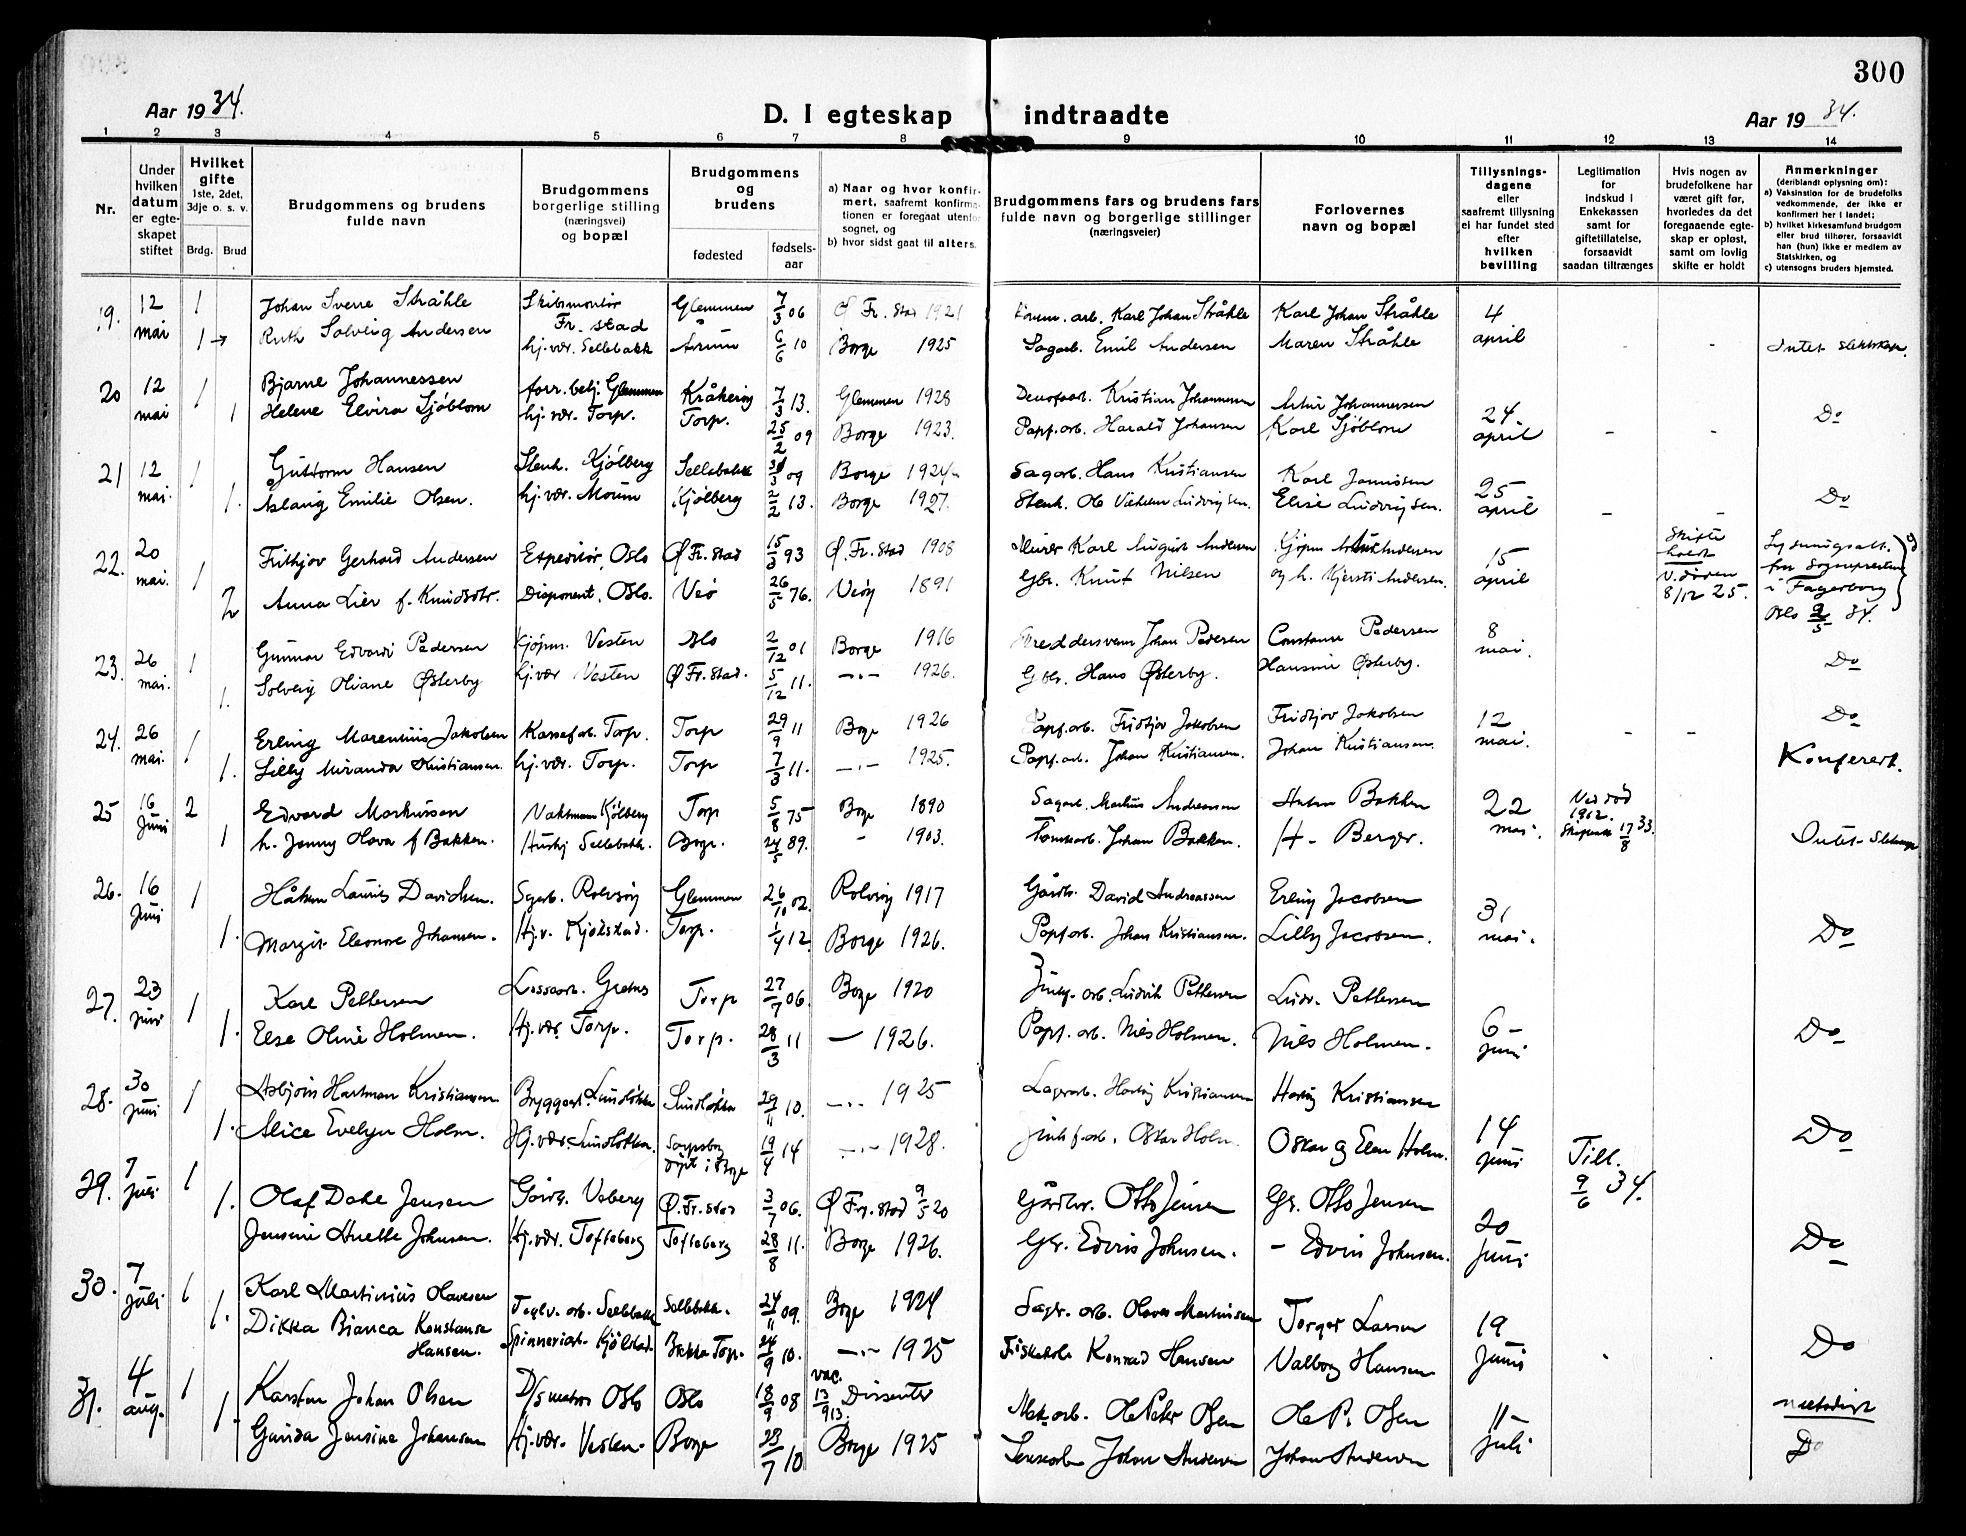 300
Aar 1934.
D. I egteskap indtraadte
Aar 1934.
1 2 3 4 5 6 7 8 9 10 11 12 13 14
Nr.
Under hvilken datum er egteskapet stiftet
Hvilket gifte 1ste, 2det, 3dje o. s. v.
Brdg. Brud
Brudgommens og brudens fulde navn
Brudgommens borgerlige stilling (næringsvei) og bopæl
Brudgommens og brudens
fødested
fødselsaar
a) Naar og hvor konfirmert, saafremt konfirmationen er foregaat utenfor sognet, og
b) hvor sidst gaat til alters.
Brudgommens fars og brudens fars fulde navn og borgerlige stillinger (næringsveier)
Forlovernes navn og bopæl
Tillysningsdagene eller saafremt tillysning ei har fundet sted efter hvilken bevilling
Legitimation for indskud i Enkekassen samt for giftetillatelse, forsaavidt saadan tiltrænges
Hvis nogen av brudefolkene har været gift før, hvorledes da det foregaaende egteskap er opløst, samt om lovlig skifte er holdt
Anmerkninger (deriblandt oplysning om):
a) Vaksinstion for de brudefolks vedkommende, der ikke er konfirmert her i landet;
b) hvilket kirkesamfund brudgom eller brud tilhører, forsaavidt han (hun) ikke er medlem av Statskirken, og
c) utensogns bruders hjemsted.
19. 12 mai 1 Johan Sverre Stråhle Skibsmontør Fr. stad Glemmen 7/3 06 Ø Fr. Stad 1921 Karl Johan Stråhle Karl Johan Stråhle 4 april
1 Ruth Solveig Andersen hj. vær. Sellebakk Årum 6/6 10 Borge 1925 Sagarb. Emil Andersen Maren Stråhle - - Intet slektskap.
20 12 mai 1 Bjarne Johannessen forr. betj. Glemmen Kråkerøy 7/3 13. Glemmen 1928 Kristian Johannessen Artur Johannessen 24 april
1 Helene Elvira Sjöblom hj. vær. Torp. Torp. 25/2 09 Borge 1923. Papf. arb. Harald Johansen Karl Sjöblom - Do
21 12 mai. 1 Guttorm Hansen Stenh. Kjölberg Sellebakk 09 Borge 1924 Sagarb. Hans Kristiansen Karl 25 april
1. Aslaug Emilie Olsen. hj. vær. Moum Kjølberg 2/2 13. Borge 1927. Stenh. Ole Vilhelm Ludvigsen. Elise Ludvigsen. - - Do
22. 20 mai. 1 Frithjov Gerhard Andersen Expeditör, Oslo Ø Fr. stad 15/3 93 Ø. Fr. Stad 1908 Murer Karl August Andersen 15 april Skifte holdt
2 Anna Lier f. Knudsdtr. Disponent, Oslo. Veö 26/5 76. Veøy 1891 Gbr. Knut Nilsen og h. Kjersti Andersen. V. döden 8/12 25. Lysningsatt. fra Sognepresten i Fagerborg Oslo 9/5 34.
23. 26 mai. 1 Gunnar Edvard Pedersen Kjöpm. Vesten Oslo 2/12 01 Borge 1916 Skreddersvenn Johan Pedersen Constance Pedersen 8 mai.
1. Solveig Oliane Østerby hj. vær Vesten Ø Fr. Stad. 5/12 11. -"- 1926. Gbr. Hans Østerby. Hansine Østerby. Do
24. 26 mai. 1 Erling Marentius Jakobsen Kassefarb. Torp. Torp 29/9 11 Borge 1926 Papf. arb. Fridtjov Jakobsen Fridtjov Jakobsen 12 mai. - - Do
1. Lilly Miranda Kristiansen. hj. vær. Torp. Torp 7/3 11. -"- 1925. Papf. arb. Johan Kristiansen. Johan Kristiansen. Konferert.
25 16 Juni 2 Edvard Markussen Vaktmann Kjölberg Torp 5/8 75 Borge 1890 Sagarb. Markus Andreassen Anton Bakken 22 mai. Ved död 1912. 17/8 33.
1 h. Jenny Olava f Bakken. Hushj Sellebakk. Borge. 24/5 89. - 1903. Tomtearb. Johan Bakken. H- Berger. Intet-Slektskap
26. 16 Juni 1 Håkon Laurits Davidsen. Sagarb. Rolvsöy Glemmen 26/10 02. Rolvsöy 1917 Gårdbr. David Andreassen Erling Jacobsen 31 mai.
1. Margit Eleonore Johansen. Hj. v. Kjölstad. Torp. 1/4 12. Borge 1926. Papf arb. Johan Kristiansen. Lilly Jacobsen. Do
27. 23 juni 1 Karl Pettersen Lossearb. Greåker Torp 27/7 06. Borge 1920 arb. Ludvik Pettersen Ludv. Pettersen 6 - juni
1. Else Oline Holmen. Hj. vær. Torp. Torp. 28/3 11 - 1926. Papf. arb. Nils Holmen. Nils Holmen. Do
28. 30 juni 1 Asbjörn Hartman Kristiansen Bryggearb. Lundløkka Lundløkka 29/11 10. -"- 1925 Lagerarb. Hartvig Kristiansen Hartvig Kristiansen 14 juni
1. Alice Evelyn Holm. Hj. vær. Lundløkka. Sarpsborg döpt i Borge 19/4 14 -"- 1928. Oskar Holm. Oskar og Elen Holm. Do
29. 7 juli 1 Olaf Dahl Jensen Gårdbr. Veberg Ø. Fr. stad 3/7 06. Ø Fr. stad 9/5 20 Gårdbr. Otto Jensen Gr. Otto Jensen 20 juni Till. 9/6 34.
1. Jensine Anette Johnsen. Hj. vær. Tofteberg Tofteberg 28/8 11. Borge 1926. Gbr. Edvin Johnsen. - Edvin Johnsen. Do
30. 7 juli 1 Karl Martinius Olavesen Teglv. arb. Sellebakk Sellebakk. 24/11 09. Borge 1924 Sagv. arb. Olaves Martinissen Torger Larsen 19 juni
1. Dikka Bianca Konstanse Hansen. Spinneriarb. Kjölstad. Bakke Torp. 24/9 10. -"- 1925 Fiskehdl. Konrad Hansen Valborg Hansen Do
31. 4 aug. 1 Karsten Johan Olsen D/s matros Oslo Oslo 18/9 08 vac. 13/9 13. Dissenter Mek. arb. Ole Peter Olsen Ole P. Olsen 11- juli metodist
1. Gunda Jensine Johansen Hj. vær. Vesten. Borge 23/7 10 Borge 1925 Johan Andersen Johan Andersen Do